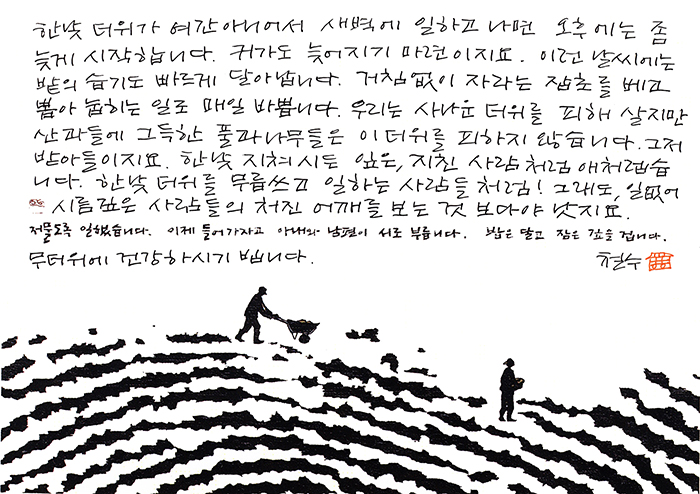 한낮 더위가 여간 아니어서 새벽에 일하고 나면 오후에는 좀
늦게 시작합니다. 귀가도 늦어지기 마련이지요. 이런 날씨에는
밭의 습기도 빠르게 달아납니다. 거침없이 자라는 잡초를 베고
뽑아 눕히는 일로 매일 바쁩니다. 우리는 사나운 더위를 피해 살지만
산과들에 그득한 풀과나무들은 이 더위를 피하지 않습니다. 그저
받아들이지요. 한낮 지쳐 시든 잎은, 지친 사람처럼 애처럽습
니다. 한낮 더위를 무릅쓰고 일하는 사람들처럼! 그래도, 일없어
시름깊은 사람들의 처진 어깨를 보는 것 보다야 낫지요.
저물도록 일했습니다. 이제 들어가자고 아내와 남편이 서로 부릅니다. 밥은 달고 잠은 깊을 겁니다.
무더위에 건강하시기 빕니다. 철수